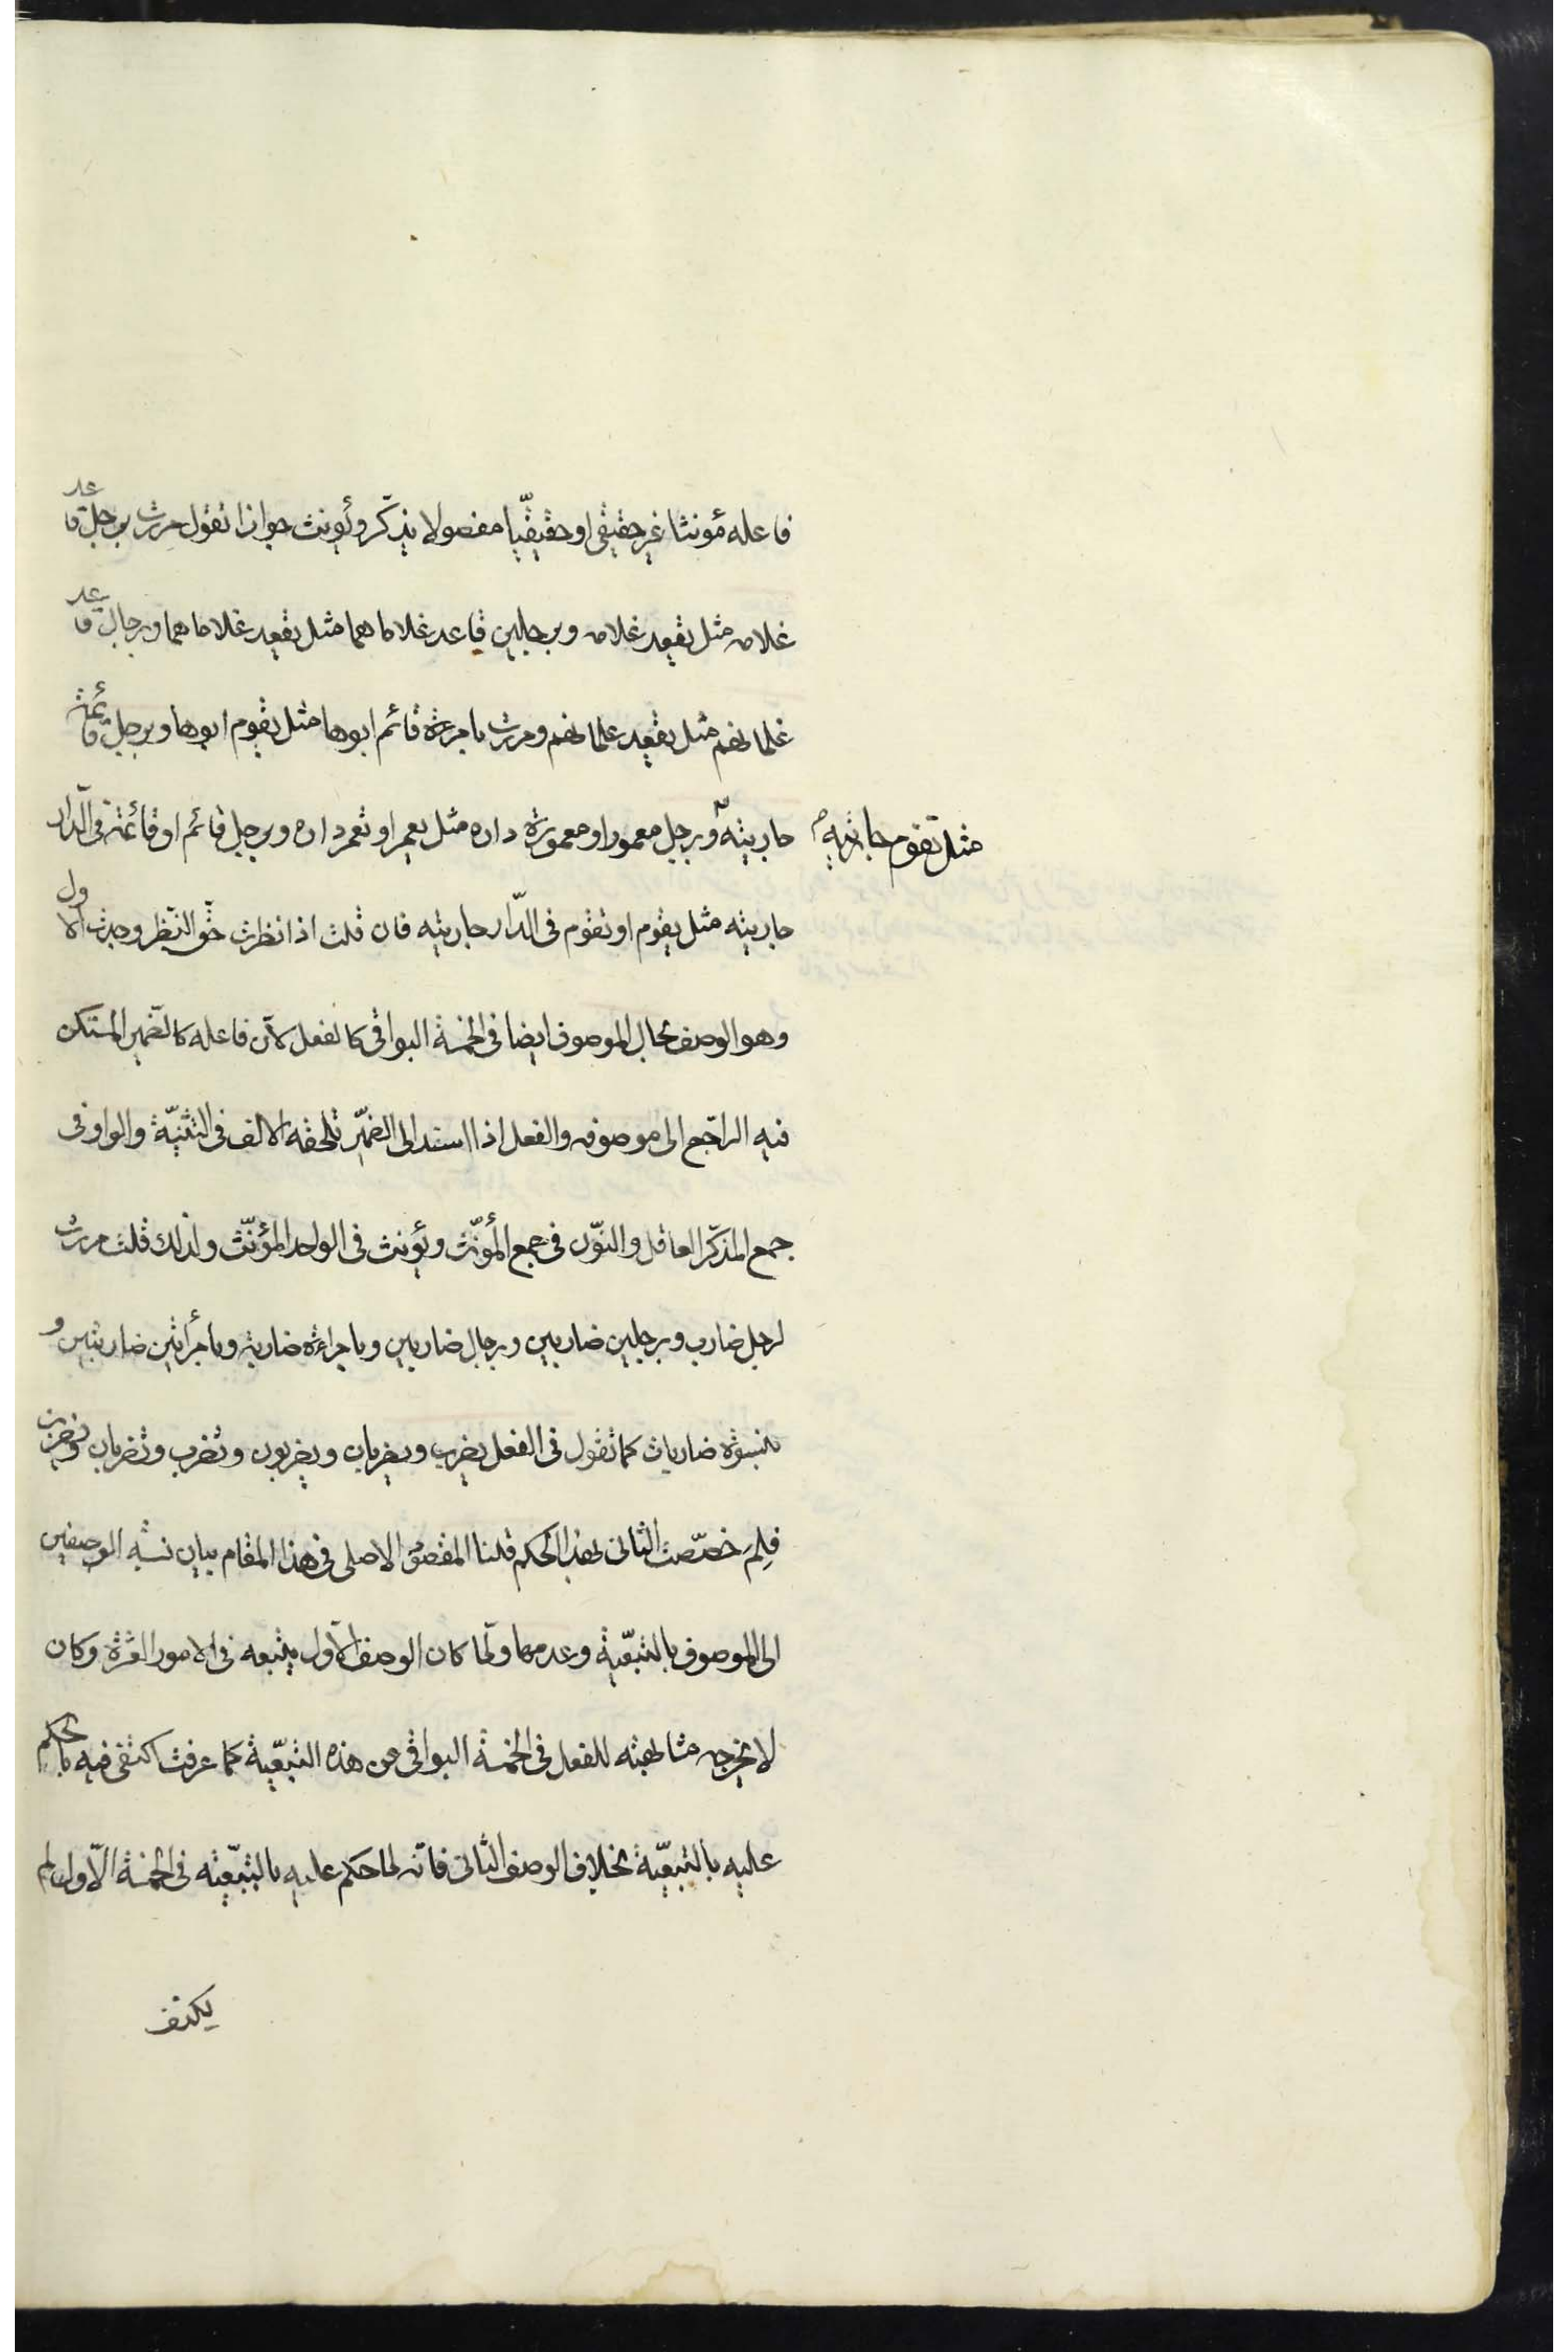 فاعله مؤنثا غير حقيقى او حقيقيّا مفصولا يذكّر ويؤنث جوازا تقول مررت برجل قاعد
غلامه مثل يقعد غلامه وبرجلين قاعد غلاماهما مثل يقعد غلاماهما وبرجال قاعد
غلمانهم مثل يقعد غلمانهم ومررت بامرءة قائم ابوها مثل يقوم ابوها وبرجل قائمة
جاريته وبرجل معمور او معمورة داره مثل يعمر او تعمر داره وبرجل قائم او قائمة فى الدّار
مثل تقوم جاريته
جاريته مثل يقوم او تقوم فى الدّار جاريته فان قلت اذا نظرت حقّ النّظر وجدت الاول
وهو الوصف بحال الموصوف ايضا فى الخمسة البواقى كالفعل لانّ فاعله كالضّمير المستكن
فيه الرّاجع الى موصوفه والفعل اذا اسند الى الضّمير تلحقه الالف فى التثنيّة والواو فى
جمع المذكّر العاقل والنّون فى جمع المؤنّث ويؤنث فى الواحد المؤنّث ولذلك قلت مررت
لرجل ضارب وبرجلين ضاربين وبرجال ضاربين وبامراءة ضاربة وبامرأتين ضاربتين و
بنسوة ضاربات كما تقول فى الفعل يضرب ويضربان ويضربون وتضرب وتضربان ويضربن
فلِمَ خصّصت الثانى بهذا الحكم قلنا المقصود الاصلى فى هذا المقام بيان نسبة الوصفين
الى الموصوف بالتبعّية وعدمها ولمّا كان الوصف الاّول يتبعه فى الامور العشرة وكان
لا يخرجه مشابهته للفعل فى الخمسة البواقى عن هذه التبعّية كما عرفت اكتفى فيه بالحكم
عليه بالتبعّية بخلاف الوصف الثّانى فانّه لما حكم عليه بالتبعّيته فى الخمسة الاّول لم
يكتف